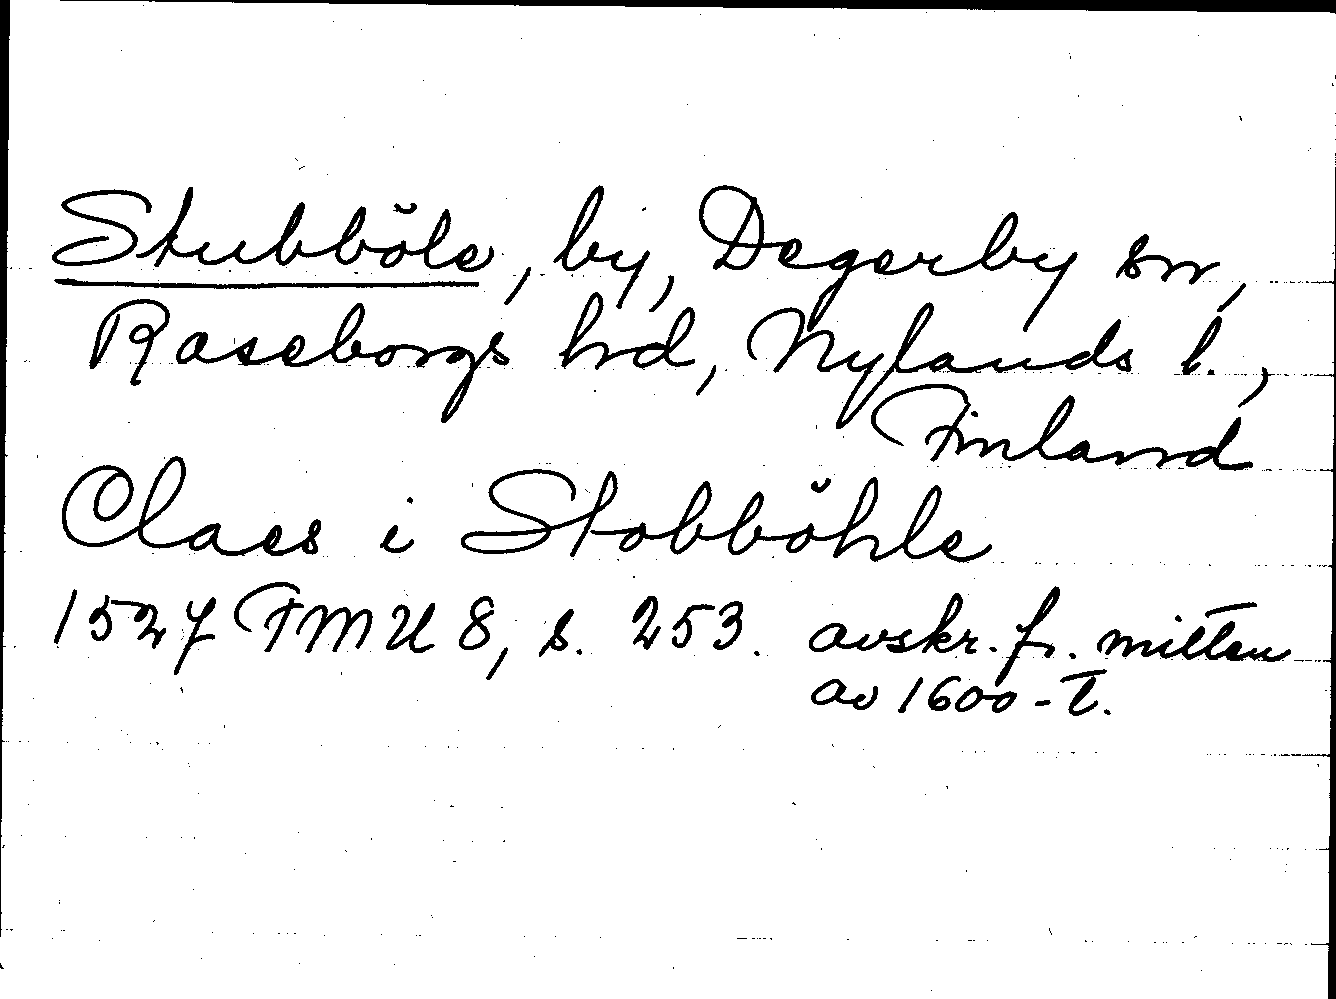 Stubböle, by, Degerby sn,
Raseborgs hrd, Nylands l.,
Finland
Claes i Stobböhle
1527 FMU 8, s. 253. avskr. fr. mitten
av 1600-t.